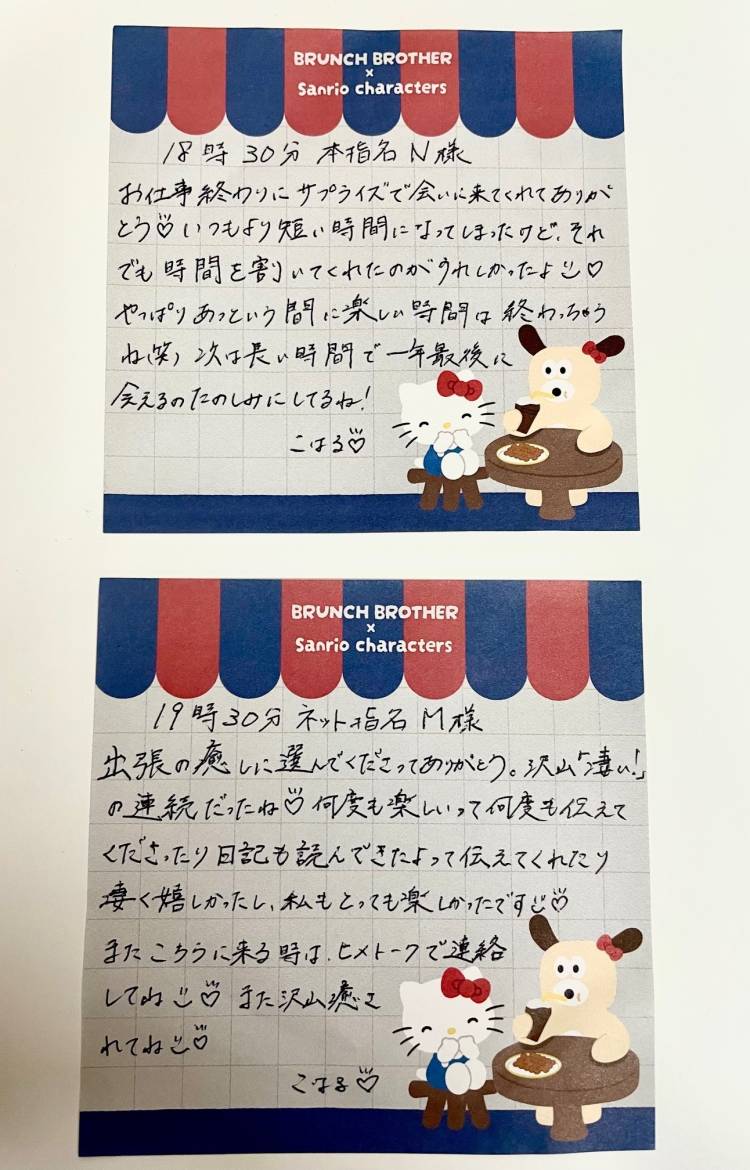 BRUNCH BROTHER
×
Sanrio characters
18時30分 本指名 N様
お仕事終わりにサプライズで会いに来てくれてありが
とう♡いつもより短い時間になってしまったけど、それ
でも時間を割いてくれたのがうれしかったよ♡
やっぱりあっという間に楽しい時間は終わっちゃう
ね(笑) 次は長い時間で一年最後に
会えるのたのしみにしてるね!
こはる♡
BRUNCH BROTHER
×
Sanrio characters
19時30分 ネット指名 M様
出張の癒しに選んでくださってありがとう。沢山「凄い!」
の連続だったね♡何度も楽しいって何度も伝えて
くださったり日記も読んできたよって伝えてくれたり
凄く嬉しかったし、私もとっても楽しかったです♡
またこちらに来る時は、ヒメトークで連絡
してね♡ また沢山癒さ
れてね♡
こはる♡